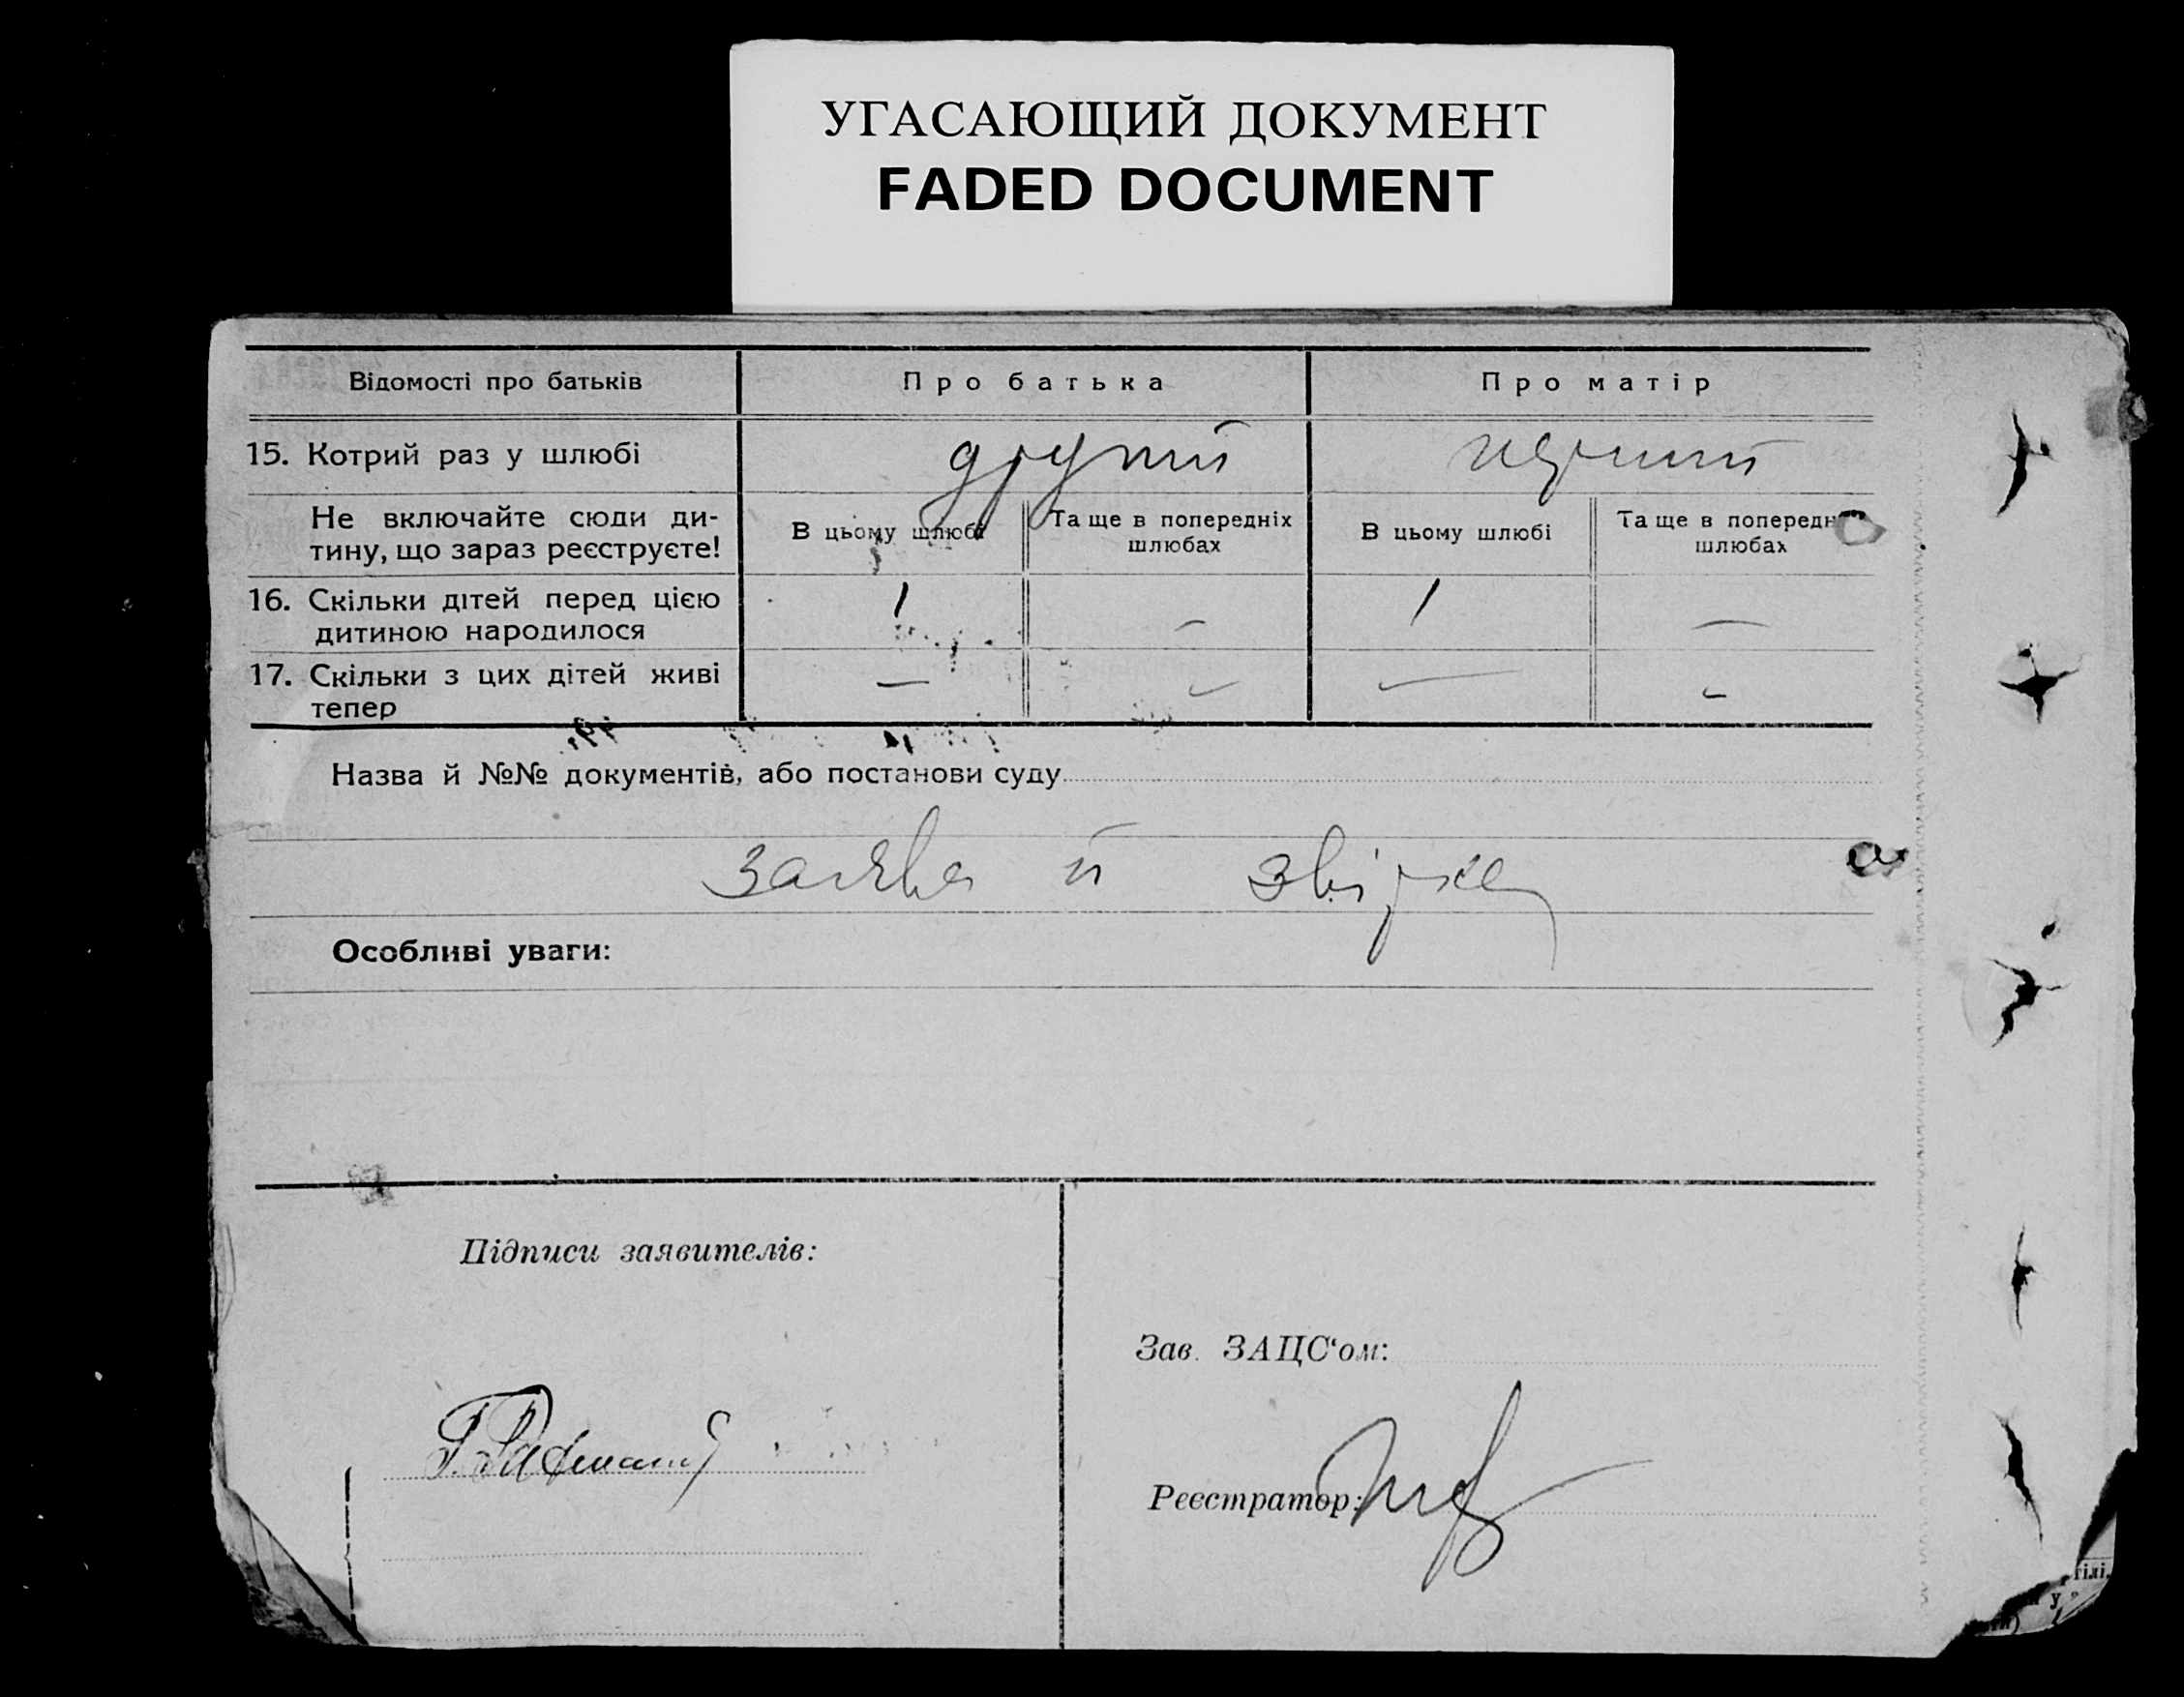 УГАСАЮЩИЙ ДОКУМЕНТ
FADED DOCUMENT
Відомості про батьків
Про батька
Про матір
15. Котрий раз у шлюбі
другий
перший
Не включайте сюди ди-
тину, що зараз реєструєте!
В цьому шлюбі
Та ще в попередніх
шлюбах
В цьому шлюбі
Та ще в попередн
шлюбах
16. Скільки дітей перед цією
дитиною народилося
1
—
1
—
17. Скільки з цих дітей живі
тепер
—
—
—
—
Назва й №№ документів, або постанови суду
заява й звірка
Особливі уваги:
Підписи заявителів:
Зав. ЗАЦС‘ом:
Реєстратор: